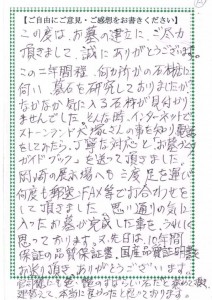 【ご自由にご意見・ご感想をお書きください】
この度は、お墓の建立に、ご尽力
頂きまして、誠にありがとうございます。
この二年間程、何ヵ所かの石材店に
伺い、墓を研究しておりましたが、
なかなか気に入る石材が見付かり
ませんでした。そんな時、インターネットで
ストーンランド大塚さんの事を知り電話
をしてみたら、丁寧な対応と、「お墓づくり
ガイドブック」を送って頂きました。
岡崎の展示場を三度足を運び
何度も郵送・FAX等で打合わせを
して頂きました。思い通りの気に
入ったお墓が完成した事を、うれしく
思っております。又、先日は、10年間
保証の品質保証書、国産品質証明書を
お送り頂きありがとうございます。
建立して、本当に良かったと思っております。